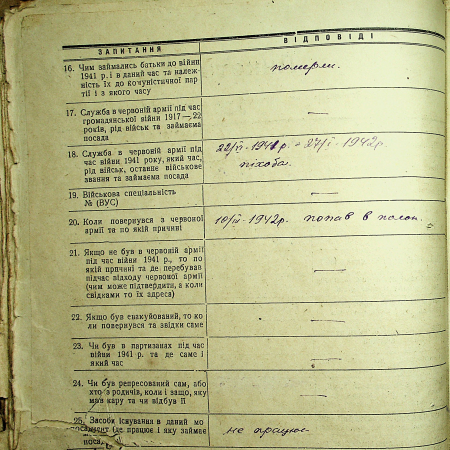 ЗАПИТАННЯ
ВІДПОВІДІ
16. Чим займались батьки до війни
1941 р. і в даний час та належ-
ність їх до комуністичної пар-
тії і з якого часу
померли.
17. Служба в червоній армії під час
громадянської війни 1917—22
років, рід військ та займаєма
посада
—
18. Служба в червоній армії під
час війни 1941 року, який час,
рід військ, останнє військове
звання та займаєма посада
піхота.
19. Військова спеціальність
№ (ВУС)
—
20. Коли повернувся з червоної
армії та по якій причині
1942р. попав в полон.
21. Якщо не був в червоній армії
під час війни 1941 р., то по
якій причині та де перебував
підчас відходу червоної армії
(чим може підтвердити, а коли
свідками то їх адреса)
—
22. Якщо був евакуйований, то ко
ли повернувся та звідки саме
—
23. Чи був в партизанах під час
війни 1941 р. та де саме і
який час
—
24. Чи був репресований сам, або
хто з родичів, коли і защо, яку
мав кару та чи відбув її
—
25. Засоби існування в даний мо
мент (де працює і яку займає
поса
не працює